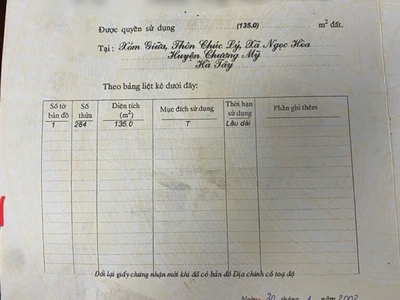 Được quyền sử dụng (135.0) m² đất.
Tại : Xóm Giữa, Thôn Chúc Lý, Xã Ngọc Hòa
Huyện Chương Mỹ
Hà Tây
Theo bảng liệt kê dưới đây:
Số tờ bản đồ Số thửa Diện tích (m²) Mục đích sử dụng Thời hạn sử dụng Phần ghi thêm
1 284 135.0 T Lâu dài
Đổi lại giấy chứng nhận mới khi đã có bản đồ Địa chính có toạ độ
Ngày 30 tháng 4 năm 2002